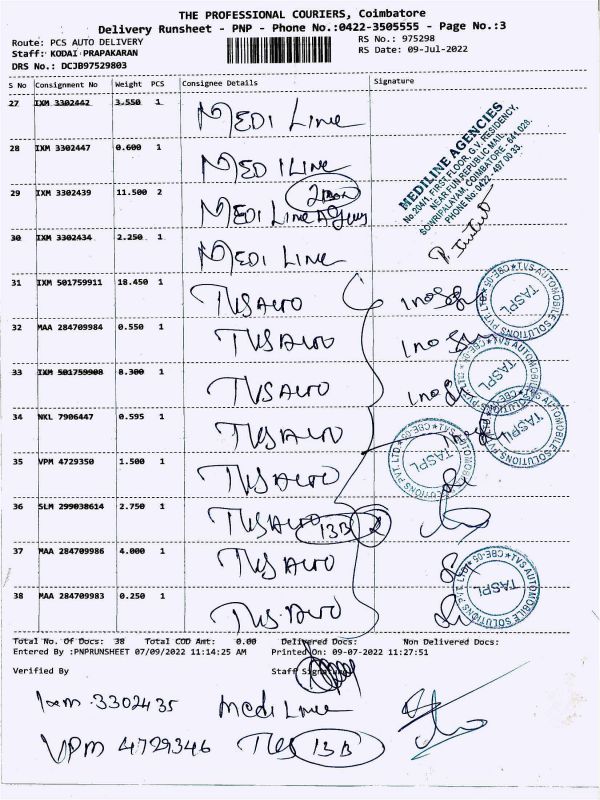 THE PROFESSIONAL COURIERS, Coimbatore
Delivery Runsheet - PNP - Phone No.:0422-3505555 - Page No.:3
Route: PCS AUTO DELIVERY
RS No.: 975298
Staff: KODAI PRAPAKARAN
RS Date: 09-Jul-2022
DRS No.: DCJB97529803
S No Consignment No Weight PCS Consignee Details Signature
27 IXM 3302442 3.550 1 MEDI Line
28 IXM 3302447 0.600 1 MEDILine
29 IXM 3302439 11.500 2 MEDI Line
30 IXM 3302434 2.250 1 MEDI Line
MEDILINE AGENCIES
No.204/1, FIRST FLOOR, G.V. RESIDENCY,
NEAR FUN REPUBLIC MALL,
SOWRIPALAYAM, COIMBATORE - 641 028.
PHONE No: 0422 - 497 00 33.
31 IXM 501759911 18.450 1 TVS AUTO
32 MAA 284709984 0.550 1 TVS AUTO
33 IXM 501759908 8.300 1 TVS AUTO
34 NKL 7906447 0.595 1 TVS AUTO
35 VPM 4729350 1.500 1 TVS AUTO
36 SLM 299038614 2.750 1 TVS AUTO 13B 2
37 MAA 284709986 4.000 1 TVS AUTO
38 MAA 284709983 0.250 1 TVS AUTO
TVS AUTOMOBILE SOLUTIONS PVT. LTD ★ CBE-05 ★
TASPL
TVS AUTOMOBILE SOLUTIONS PVT. LTD ★ CBE-05 ★
TASPL
TVS AUTOMOBILE SOLUTIONS PVT. LTD ★ CBE-05 ★
TASPL
TVS AUTOMOBILE SOLUTIONS PVT. LTD ★ CBE-05 ★
TASPL
TVS AUTOMOBILE SOLUTIONS PVT. LTD ★ CBE-05 ★
TASPL
Total No. Of Docs: 38 Total COD Amt: 0.00 Delivered Docs: Non Delivered Docs:
Entered By :PNPRUNSHEET 07/09/2022 11:14:25 AM Printed On: 09-07-2022 11:27:51
Verified By Staff Signature
Ixm 3302435 Medi Line
VPM 4729346 TVS 13B